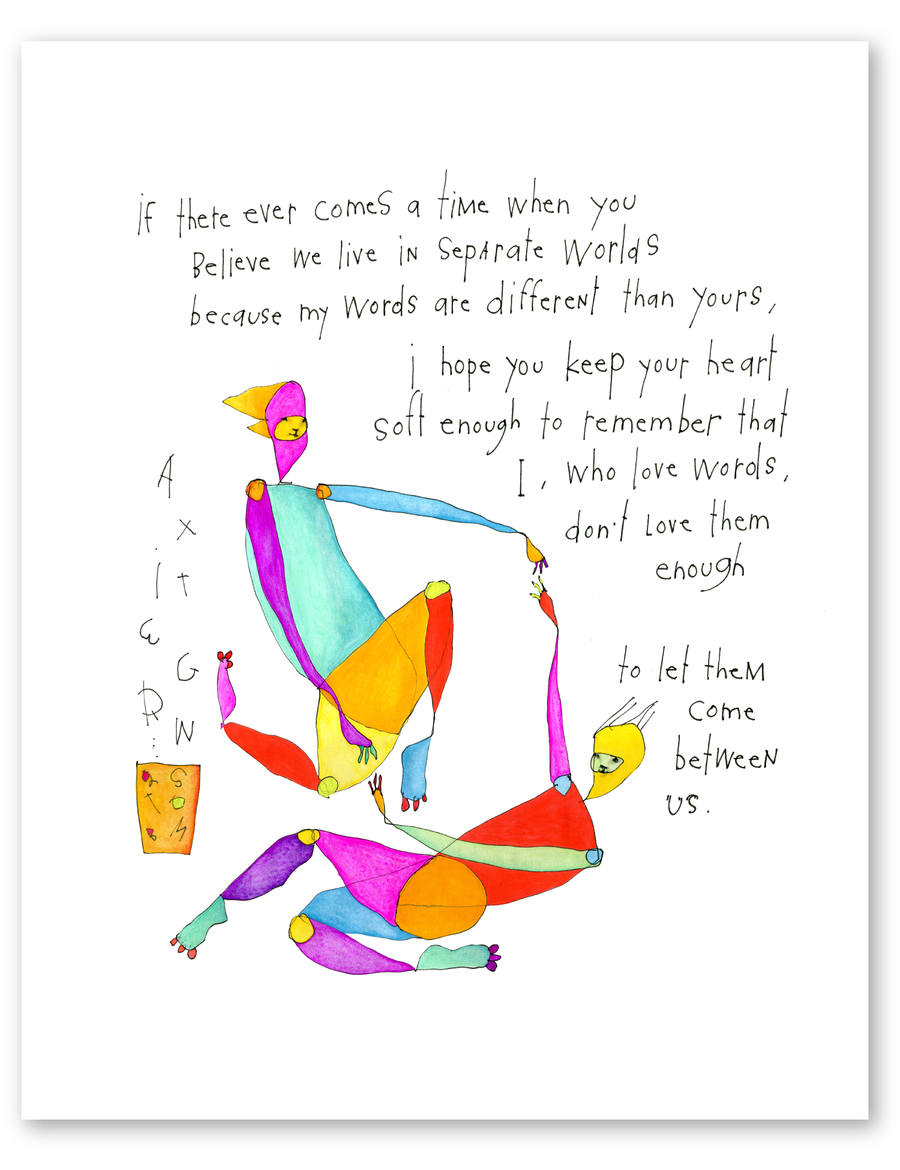 if there ever comes a time when you
Believe we live in separate worlds
because my words are different than yours,
i hope you keep your heart
soft enough to remember that
I, who love words,
don't love them
enough
to let them
come
between
us.
A
x
i t
E
G
R
W